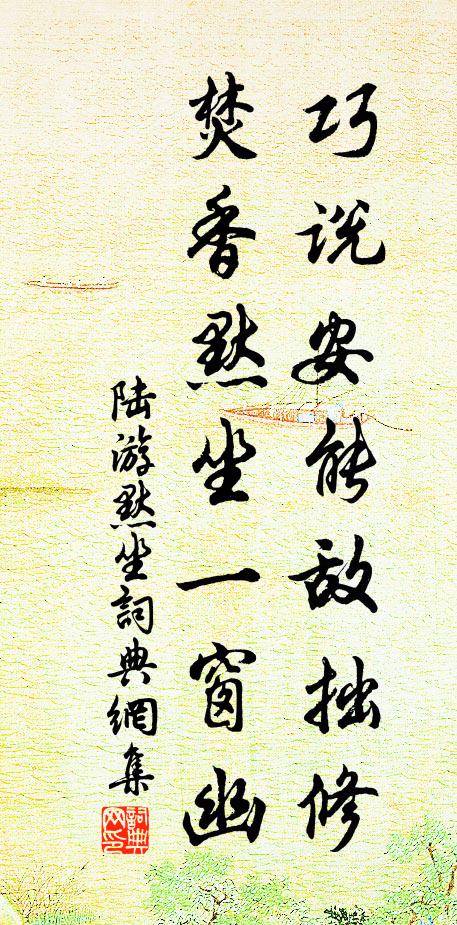 巧说安能敌拙修
焚香默坐一窗幽
陆游默坐詞典網集
詞典
网印